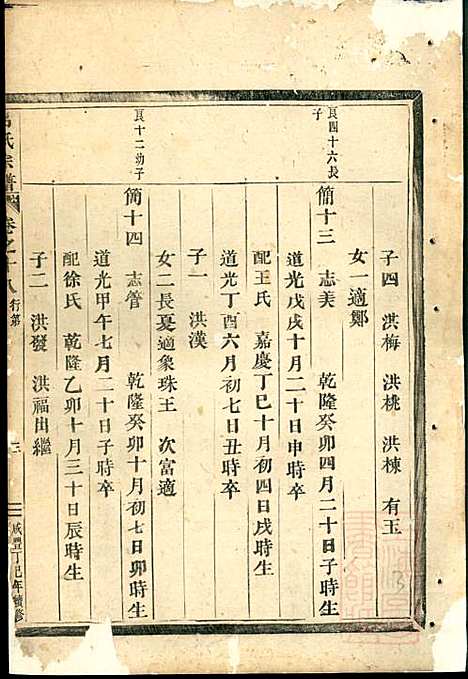 子四 洪梅 洪桃 洪棟 有玉
女一適鄭
良四十六長子
簡十三 志美 乾隆癸卯四月二十日子時生
道光戊戌十月二十日申時卒
配王氏 嘉慶丁巳十月初四日戌時生
道光丁酉六月初七日丑時卒
子一 洪漢
女二長夏適象珠王 次富適
良十二幼子
簡十四 志管 乾隆癸卯十月初七日卯時生
道光甲午七月二十日子時卒
配徐氏 乾隆乙卯十月三十日辰時生
子二 洪發 洪福出繼
氏宗譜 卷之十八 行第 咸豐丁巳年續修